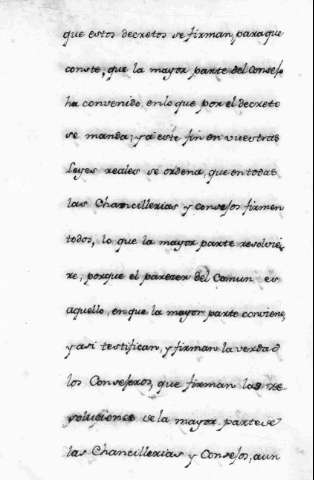 que estos decretos se firman, para que
conste, que la mayor parte del Consejo
ha convenido, en lo que por el decreto
se manda; y a este fin en vuestras
Leyes reales se ordena, que en todas
las Chancillerias y Consejos firmen
todos, lo que la mayor parte resolvie,
re, porque el parecer del Comun es
aquello, en que la mayor parte conviene,
y asi testifican, y firman la verdad
los Consejeros, que firman las re
soluciones de la mayor parte de
las Chancillerias y Consejos, aun